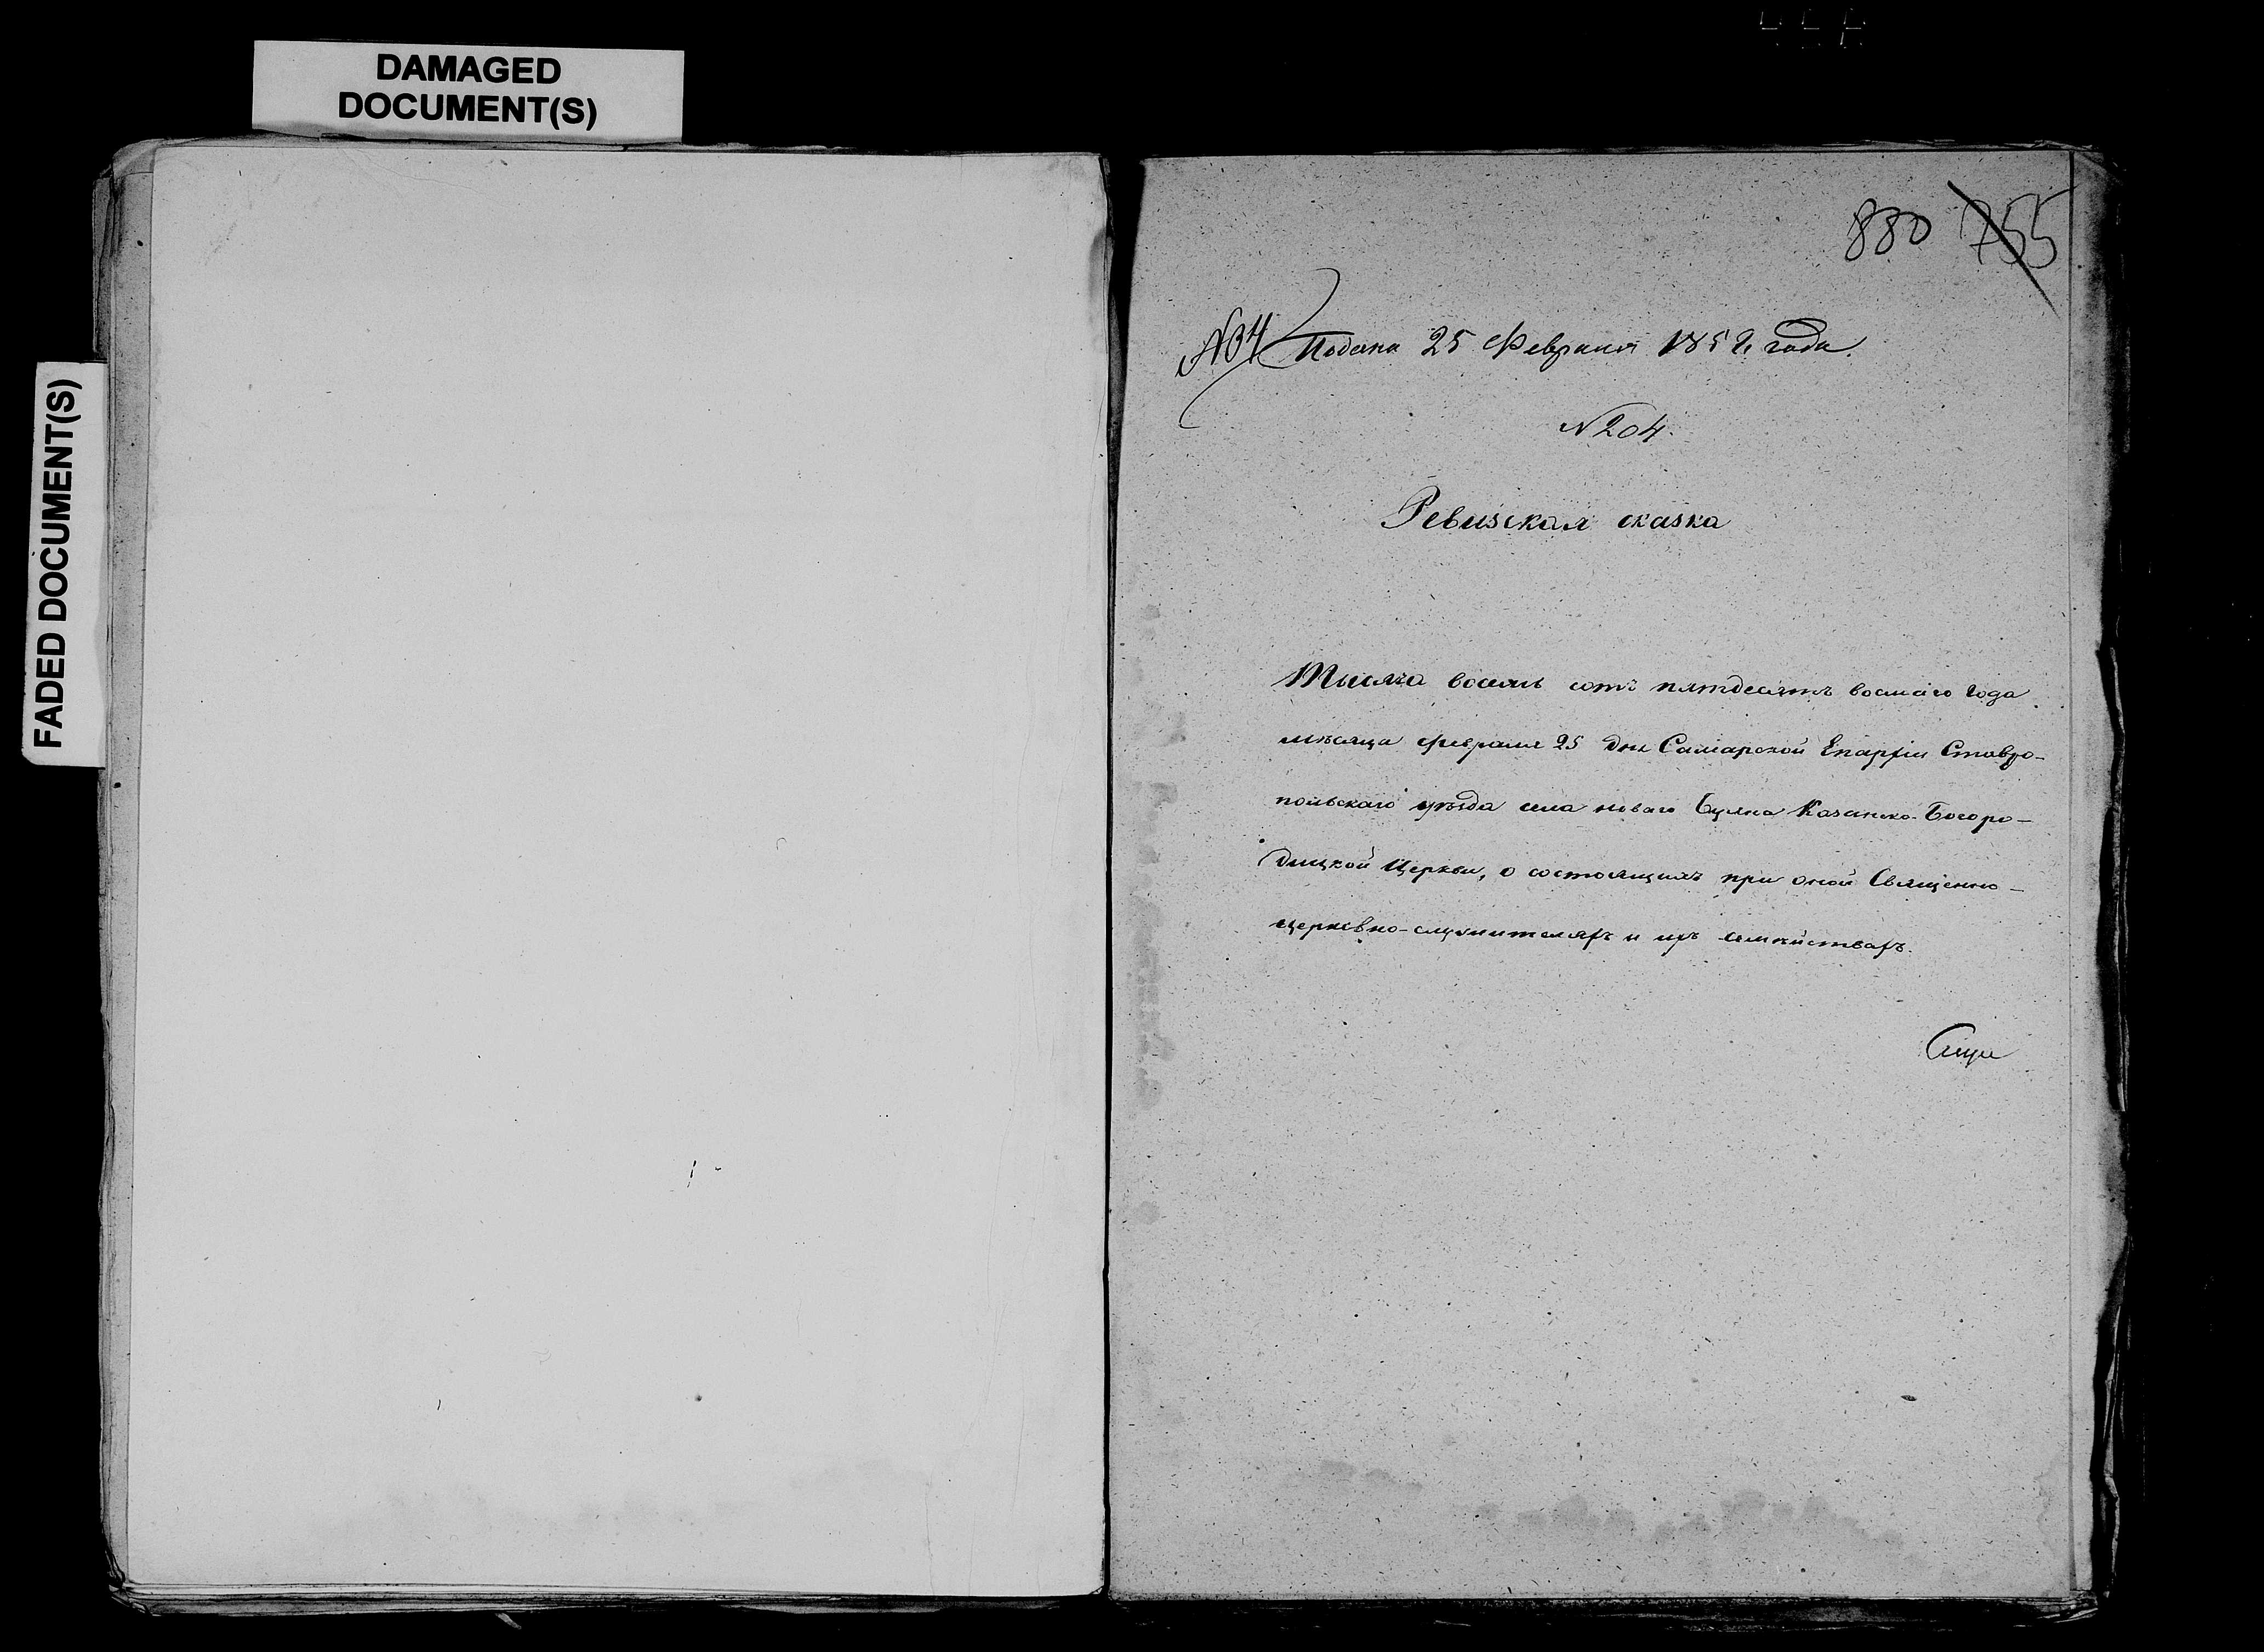 DAMAGED
DOCUMENT(S)
FADED DOCUMENT(S)
880 755
Подана 25 Февраля 1858 года.
N 204.
Ревизская сказка
Тысяча восемь сотъ пятдесятъ восмаго года
мѣсяца февраля 25 дня Самарской Епархіи Ставро-
польскаго уѣзда села новаго Буяна Казанско-Богоро-
дицкой Церкви, о состоящихъ при оной Священно-
церковно-служителяхъ и ихъ семѣйствахъ.